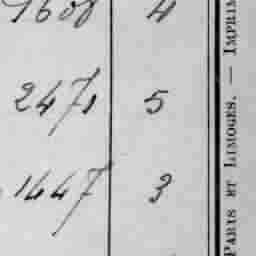 1608 4
2471 5
1447 3
PARIS ET LIMOGES. — IMPRIM